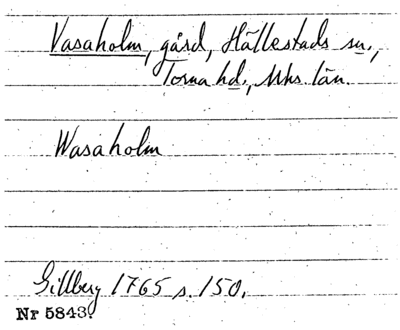 Vasaholm, gård, Hällestads sn.,
Torna hd., Mhs. län.
Wasaholm
Gillberg 1765 s. 150.
Nr 5843.